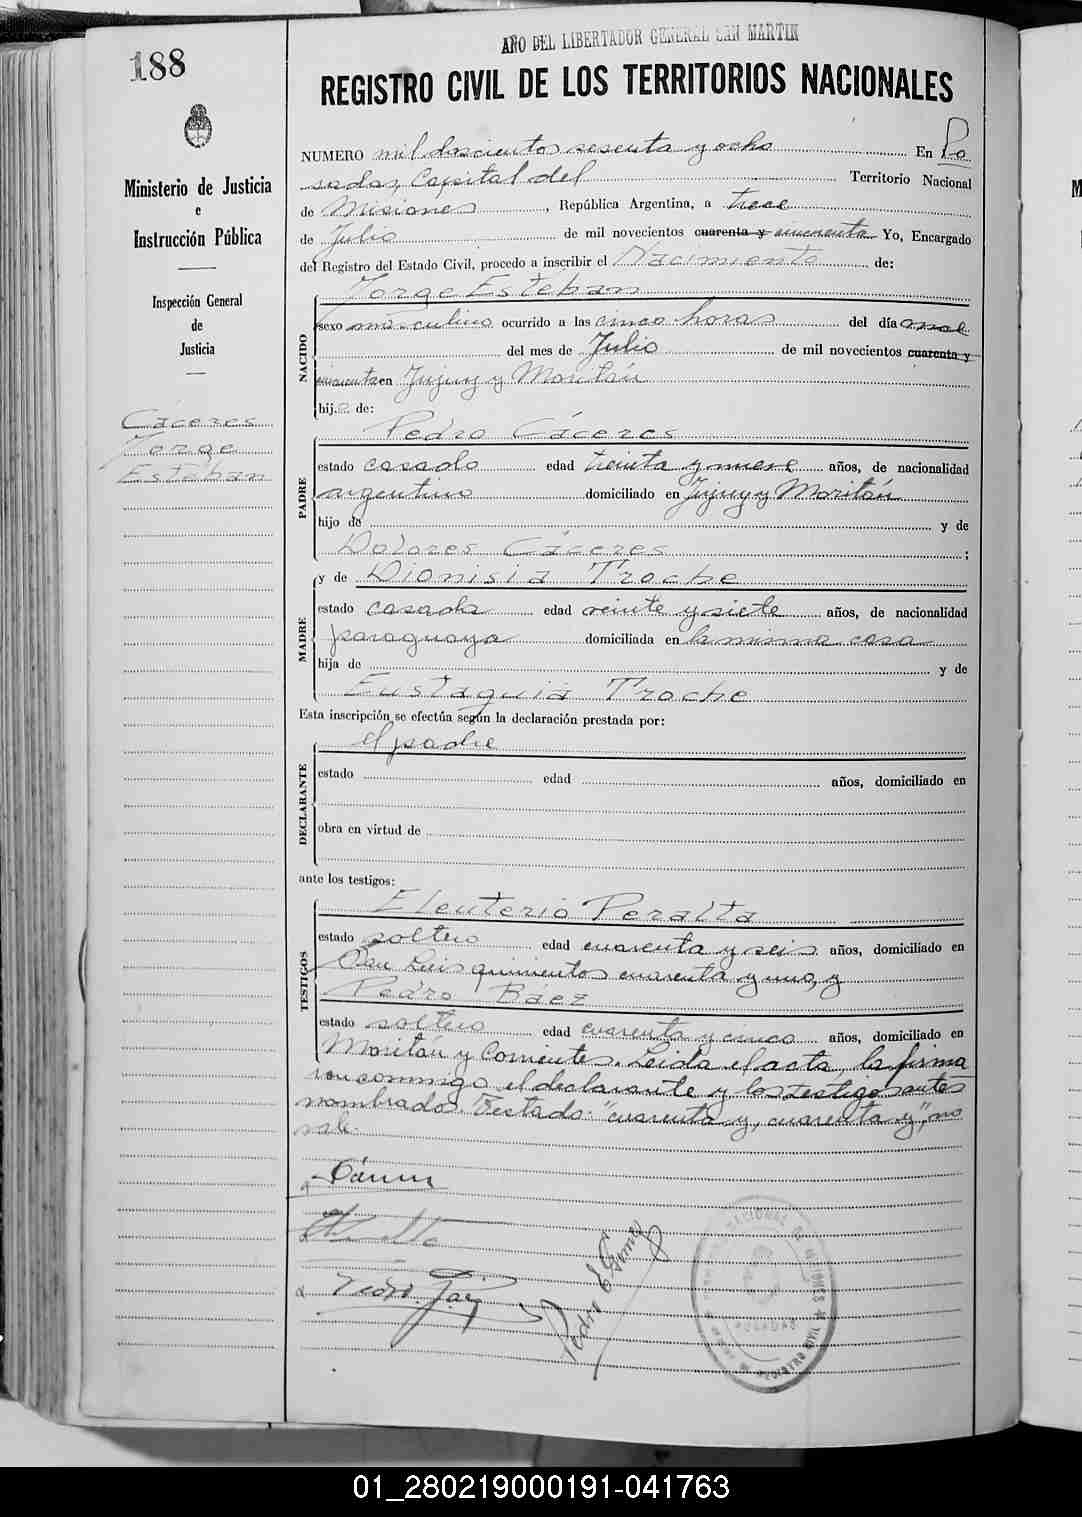 188
AÑO DEL LIBERTADOR GENERAL SAN MARTIN
REGISTRO CIVIL DE LOS TERRITORIOS NACIONALES
Ministerio de Justicia
e
Instrucción Pública
Inspección General
de
Justicia
Cáceres
Jorge
Esteban
NUMERO mil doscientos sesenta y ocho En Po
sadas, Capital del Territorio Nacional
de Misiones, República Argentina, a trece
de Julio de mil novecientos cuarenta y cincuenta Yo, Encargado
del Registro del Estado Civil, procedo a inscribir el Nacimiento de:
NACIDO
Jorge Esteban
sexo masculino ocurrido a las cinco horas del día
del mes de Julio de mil novecientos cuarenta y
cincuenta en Jujuy y Maritán
hijo de:
PADRE
Pedro Cáceres
estado casado edad treinta y nueve años, de nacionalidad
argentino domiciliado en Jujuy y Maritán
hijo de y de
Dolores Cáceres ;
MADRE
y de Dionisia Troche
estado casada edad veinte y siete años, de nacionalidad
paraguaya domiciliada en la misma casa
hija de y de
Eustaquia Troche
Esta inscripción se efectúa según la declaración prestada por:
DECLARANTE
el padre
estado edad años, domiciliado en
obra en virtud de
ante los testigos:
TESTIGOS
Eleuterio Peralta
estado soltero edad cuarenta y seis años, domiciliado en
San Luis quinientos cuarenta y uno, y
Pedro Báez
estado soltero edad cuarenta y cinco años, domiciliado en
Maritán y Corrientes. Leida el acta, la firma
con conmigo el declarante y los testigos antes
nombrados. Testado: "cuarenta y, cuarenta y", no
vale.
Pedro Báez
Pedro E Gomez
POSADAS
REGISTRO CIVIL
01_280219000191-041763